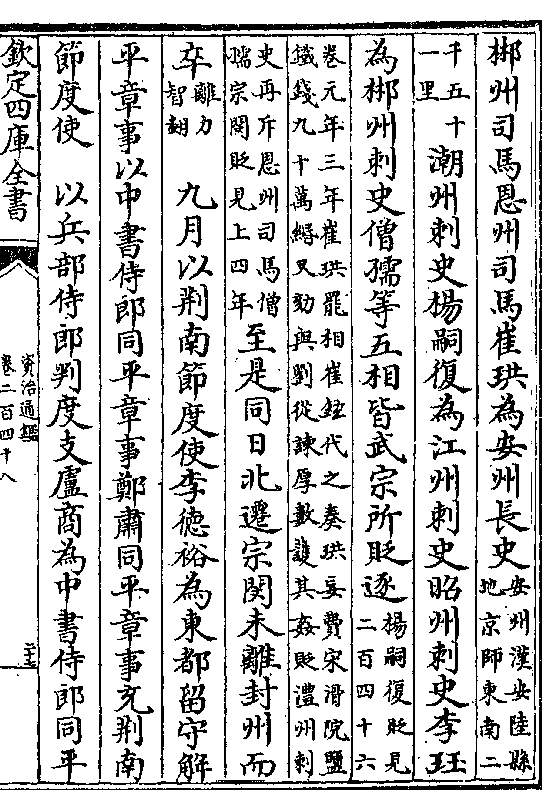 郴州司馬恩州司馬崔珙為安州長史安州漢安陸縣地京師東南二
千五十一里潮州刺史楊嗣復為江州刺史昭州刺史李珏
為郴州刺史僧孺等五相皆武宗所貶逐楊嗣復貶見二百四十六
卷元年三年崔珙罷相崔鉉代之奏珙妄費宋滑院鹽鐵錢九十萬緡又劾與劉從諫厚數護其姦貶澧州刺
史再斥恩州司馬僧孺宗閔貶見上四年至是同日北遷宗閔未離封州而
卒離力智翻　九月以荆南節度使李德裕為東都留守解
平章事以中書侍郎同平章事鄭肅同平章事充荆南
節度使　以兵部侍郎判度支盧商為中書侍郎同平
欽定四庫全書
資治通鑑
卷二百四十八